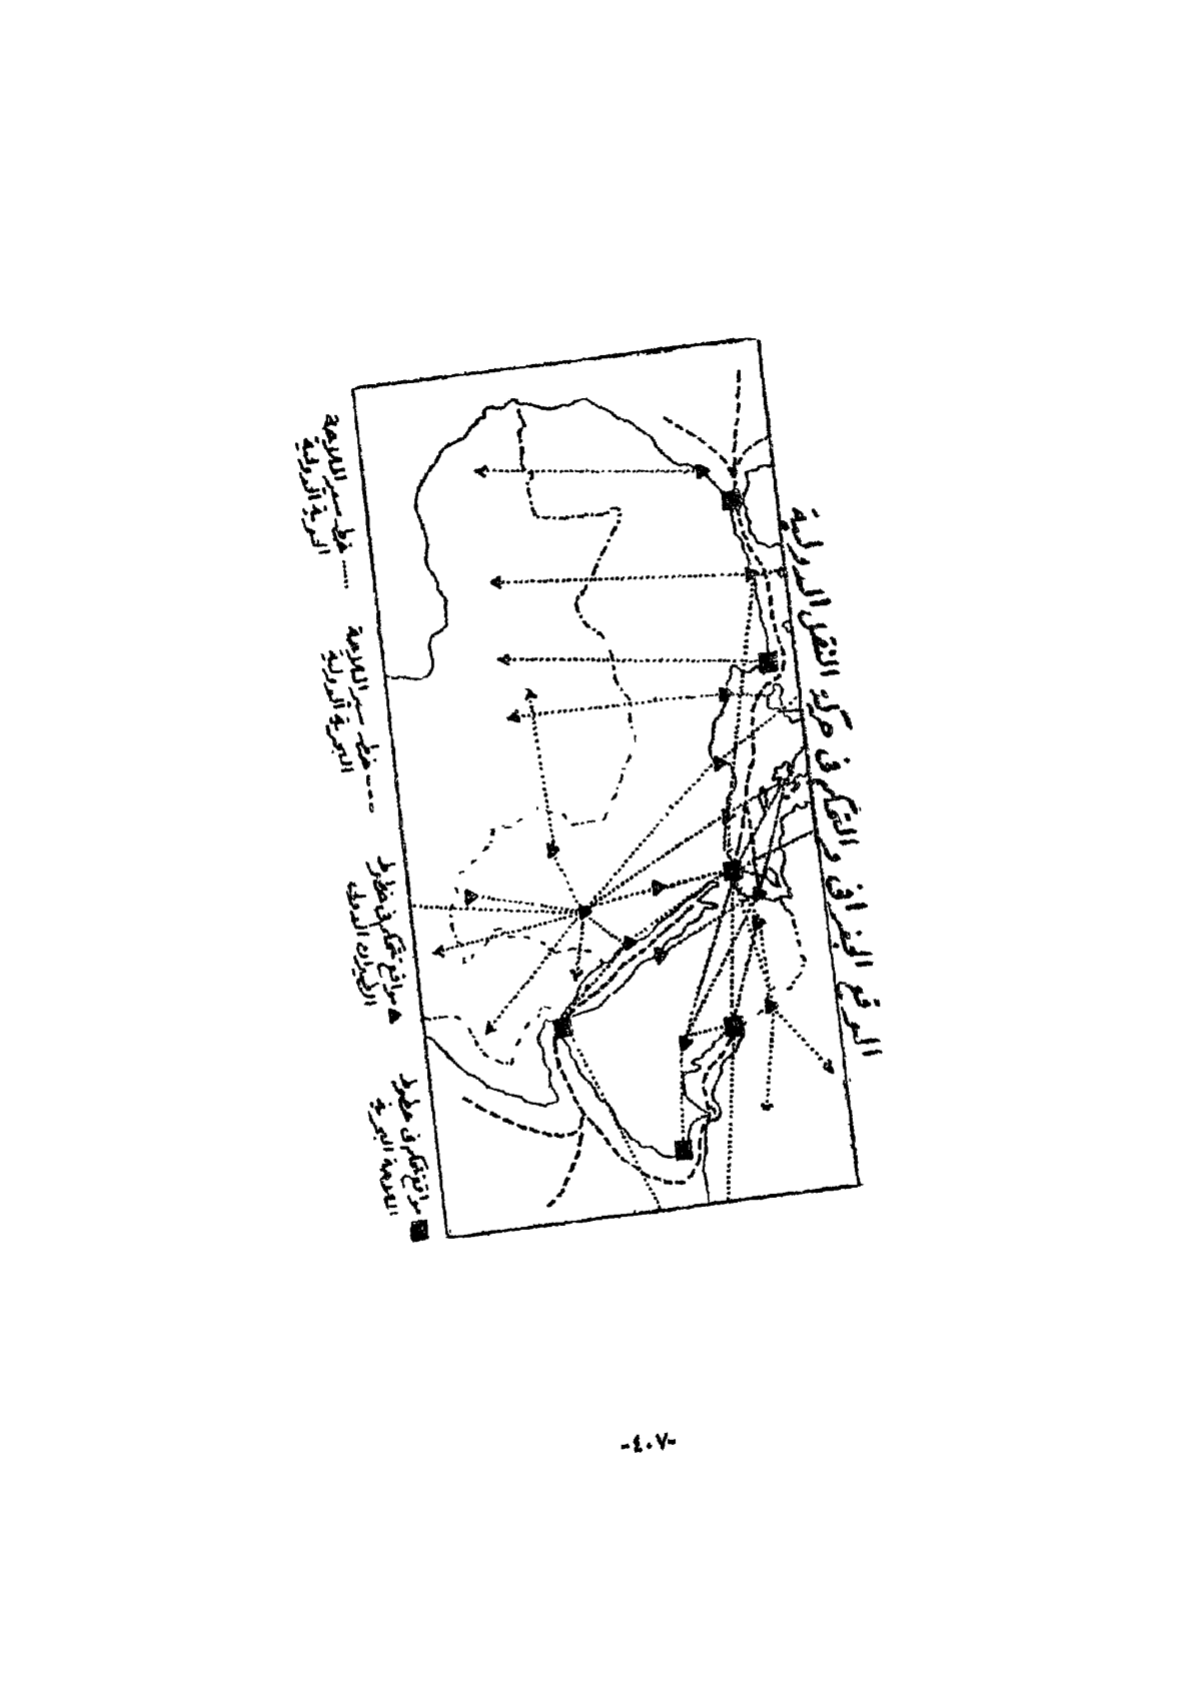 الموقع الجغرافى والتحكم فى حركة النقل الدولية
■ مواقع تتحكم فى خطوط
الملاحة البحرية
▲ مواقع تتحكم فى خطوط
الطيران الدولى
--- خط سير الملاحة
البحرية الدولية
..... خط سير الملاحة
الجوية الدولية
-٤٠٧-